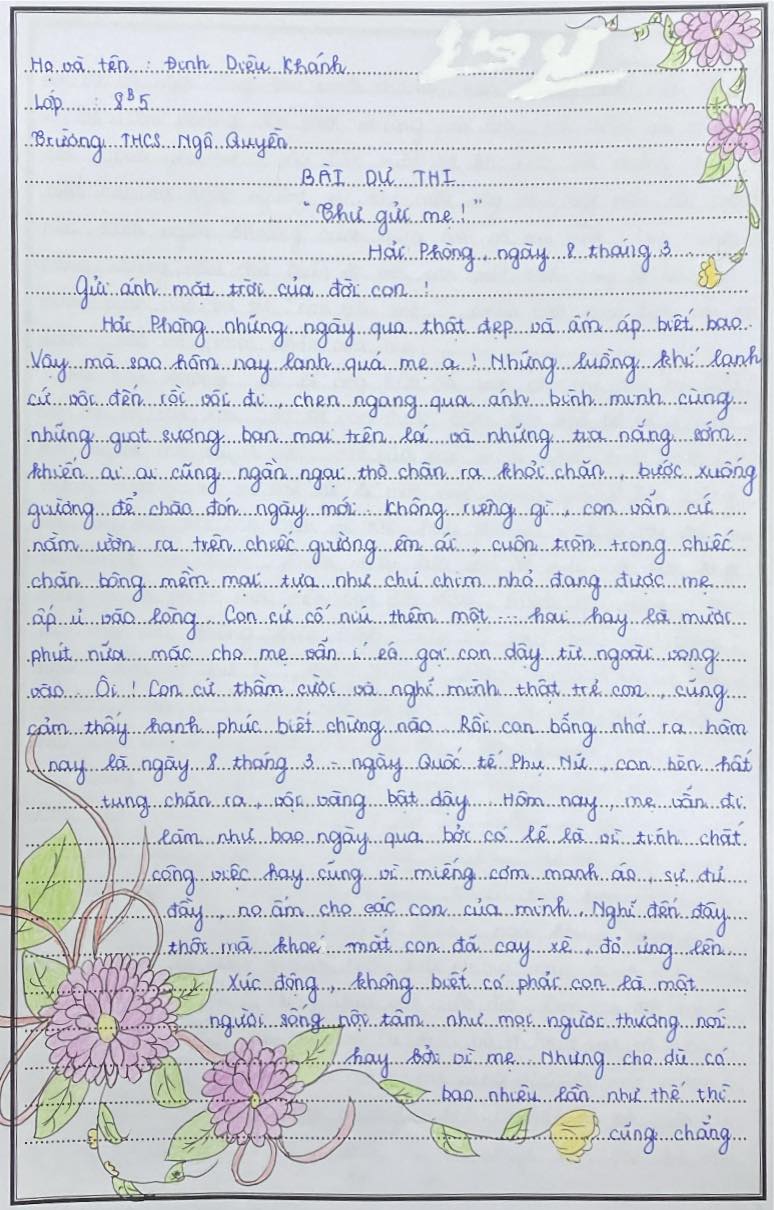 Họ và tên : Đinh Diệu Khánh
Lớp : 8B5
Trường THCS Ngô Quyền
BÀI DỰ THI
"Thư gửi mẹ !"
Hải Phòng, ngày 8 tháng 3
Gửi ánh mặt trời của đời con !
Hải Phòng những ngày qua thật đẹp và ấm áp biết bao.
Vậy mà sao hôm nay lạnh quá mẹ ạ ! Những luồng khí lạnh
cứ vội đến rồi vội đi, chen ngang qua ánh bình minh cùng
những giọt sương ban mai trên lá và những tia nắng sớm
khiến ai ai cũng ngần ngại thò chân ra khỏi chăn, bước xuống
giường để chào đón ngày mới. Không riêng gì, con vẫn cứ
nằm ườn ra trên chiếc giường êm ái, cuộn tròn trong chiếc
chăn bông mềm mại tựa như chú chim nhỏ đang được mẹ
ấp ủ vào lòng. Con cứ cố níu thêm một... hai hay là mười
phút nữa mặc cho mẹ vẫn í éo gọi con dậy từ ngoài vọng
vào. Ôi ! Con cứ thầm cười và nghĩ mình thật trẻ con, cũng
cảm thấy hạnh phúc biết chừng nào. Rồi con bỗng nhớ ra hôm
nay là ngày 8 tháng 3 - ngày Quốc tế Phụ Nữ, con bèn hất
tung chăn ra, vội vàng bật dậy. Hôm nay, mẹ vẫn đi
làm như bao ngày qua bởi có lẽ là vì tính chất
công việc hay cũng vì miếng cơm manh áo, sự đủ
đầy, no ấm cho các con của mình. Nghĩ đến đây
thôi mà khoé mắt con đã cay xè, đỏ ửng lên
Xúc động, không biết có phải con là một
người sống nội tâm như mọi người thường nói
hay bởi vì mẹ. Nhưng cho dù có
bao nhiêu lần như thế thì
cũng chẳng